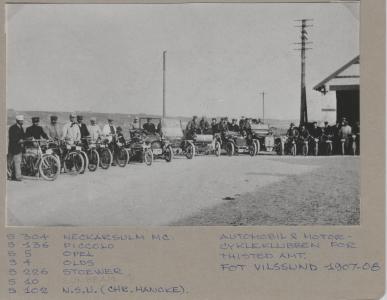 S 304 NECKARSULM MC.
S 136 PICCOLO
S 5 OPEL
S 4 OLDS
S 226 STOEWER
S 10
S 102 N.S.U. (CHR. HANCKE).
AUTOMOBIL & MOTOR-
CYKLEKLUBBEN FOR
THISTED AMT.
FOT VILSSUND 1907-08